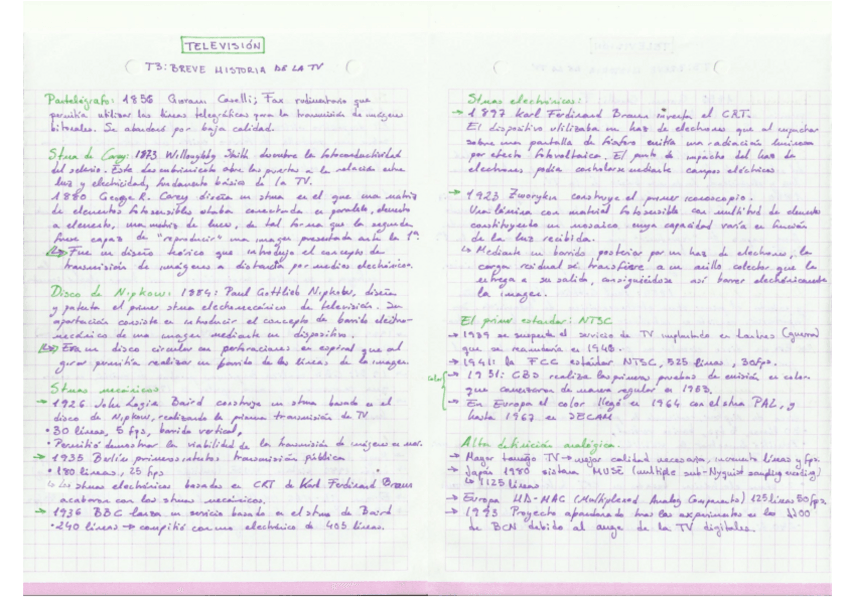 TELEVISIÓN
T3: BREVE HISTORIA DE LA TV
Pantelégrafo: 1856 Caselli; Fax rudimentario que
permitía utilizar las líneas telegráficas para la transmisión de imágenes
bitonales. Se abandonó por baja calidad.
Stma de Carey: 1873 Willoughby Smith descubre la fotoconductividad
del selenio. Este descubrimiento abre las puertas a la relación entre
luz y electricidad, fundamento básico de la TV.
1880 George R. Carey diseña un stma en el que una matriz
de elementos fotosensibles estaba conectada en paralelo, elemento
a elemento, una matriz de luces, de tal forma que la segunda
fuese capaz de "reproducir" una imagen presentada ante la 1ª
Fue un diseño teórico que introdujo el concepto de
transmisión de imágenes a distancia por medios electrónicos.
Disco de Nipkow: 1884: Paul Gottlieb Nipkow, diseña
y patenta el primer stma electromecánico de televisión. Su
aportación consiste en introducir el concepto de barrido electro-
mecánico de una imagen mediante un dispositivo.
Era un disco circular con perforaciones en espiral que al
girar permitía realizar un barrido de las líneas de la imagen.
Stmas mecánicos
→ 1926 John Logie Baird construye un stma basado en el
disco de Nipkow, realizando la primera transmisión de TV
· 30 líneas, 5 fps, barrido vertical,
· Permitió demostrar la viabilidad de la transmisión de imágenes en mov.
→ 1935 Berlín primeros intentos transmisión pública
· 180 líneas, 25 fps
↳ Los stmas electrónicos basados en CRT de Karl Ferdinand Braun
acabaron con los stmas mecánicos.
→ 1936 BBC lanza un servicio basado en el stma de Baird
· 240 líneas → compitió con uno electrónico de 405 líneas.
Stmas electrónicos:
→ 1897 Karl Ferdinand Braun inventa el CRT.
El dispositivo utilizaba un haz de electrones que al impactar
sobre una pantalla de fósforo emitía una radiación luminosa
por efecto fotovoltaica. El punto de impacto del haz de
electrones podía controlarse mediante campos eléctricos
→ 1923 Zworykin construye el primer iconoscopio.
Una lámina con material fotosensible con multitud de elementos
constituyendo un mosaico cuya capacidad varía en función
de la luz recibida.
↳ Mediante un barrido posterior por un haz de electrones, la
carga residual se transfiere a un anillo colector que la
entrega a su salida, consiguiéndose así barrer electrónicamente
la imagen.
El primer estándar: NTSC
→ 1939 se suspende el servicio de TV implantada en Londres (guerra)
que se reanudaría en 1946.
→ 1941 la FCC estándar NTSC, 525 líneas, 30fps.
color
→ 1951: CBS realiza las primeras pruebas de emisión en color
que comenzaron de manera regular en 1953.
→ En Europa el color llegó en 1964 con el stma PAL, y
hasta 1967 en SECAM
Alta definición analógica.
→ Mayor tamaño TV → mejor calidad necesaria, incremento líneas y fps
→ Japón 1980 sistema MUSE (multiple sub-Nyquist sampling encoding)
↳ 1125 líneas
→ Europa HD-MAC (Multiplexed Analog Components) 125 líneas 50fps
→ 1993 Proyecto abandonado tras los experimentos en los JJOO
de BCN debido al auge de la TV digitales.